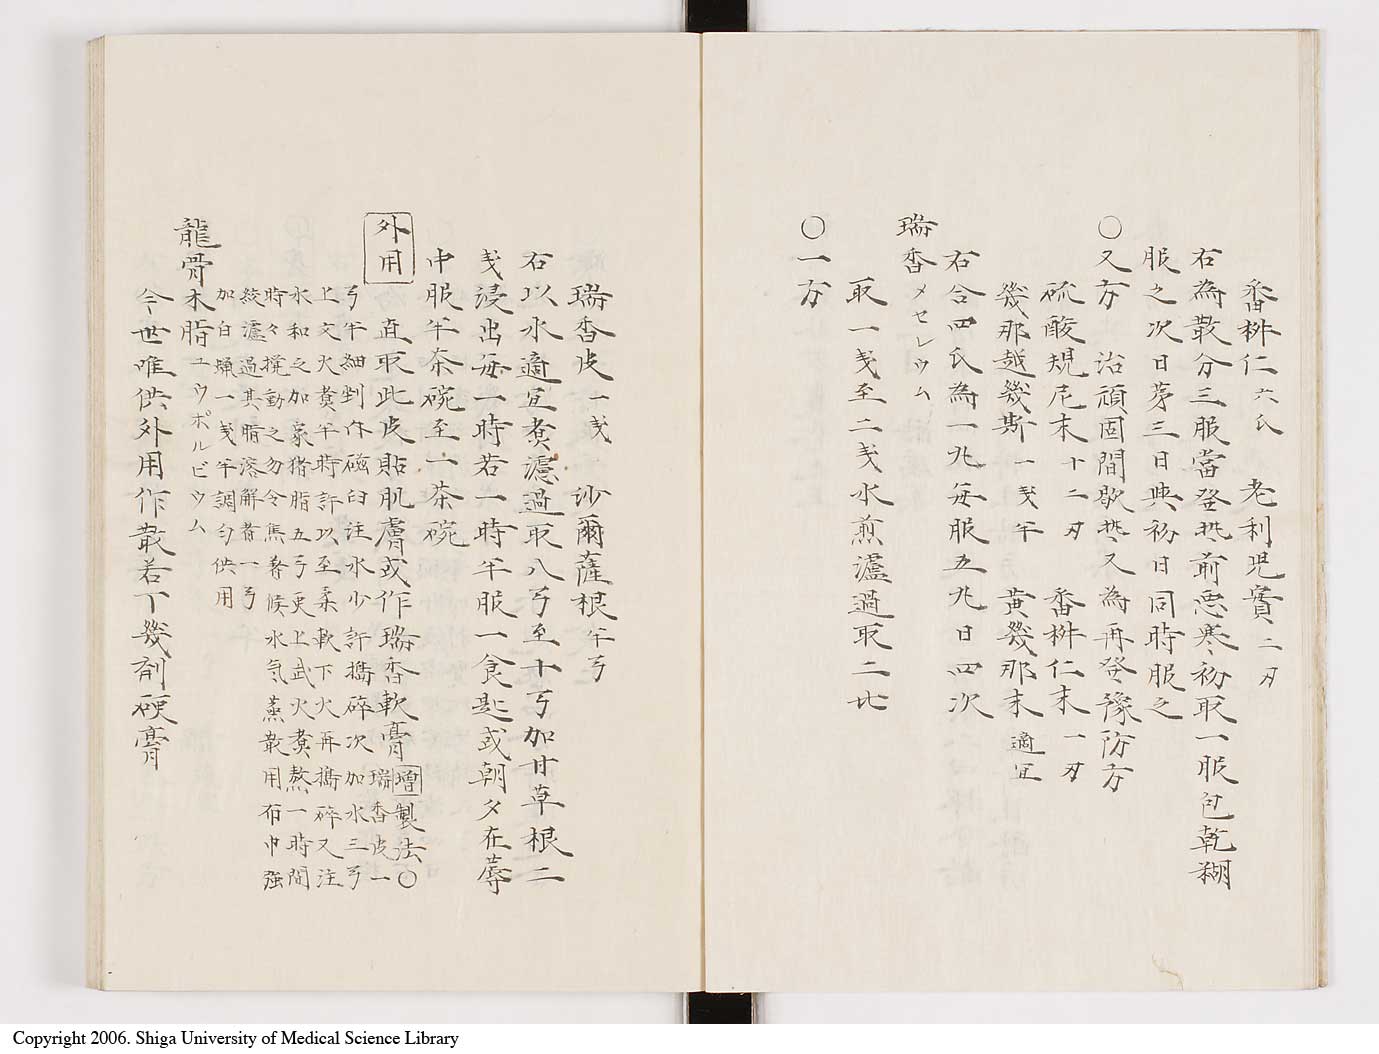 番椒仁 六氏 老利児實 二刄
右為散分三服當發𤍠前悪寒初取一服包乾糊
服之次日苐三日與初日同時服之
○又方 治頑固間歇𤍠又為再發豫防方
硫酸規尼末 十二刄 番椒仁末 一刄
幾那越幾斯 一戔半 黄幾那末 適宜
右合四氏為一丸毎服五丸日四次
瑞香 メセレウム
取一戔至二戔水煎濾過取二比
○一方
瑞香皮 一戔 沙爾薩根 半弓
右以水適宜煮濾過取八弓至十弓加甘草根二
戔浸出毎一時若一時半服一食匙或朝夕在蓐
中服半茶碗至一茶碗
外用 直取此皮貼肌膚或作瑞香軟膏 増製法○
瑞香皮一
弓半細剉作磁臼注水少許擣碎次加水三弓
上文火煮半時許以至柔軟下火再擣碎又注
水和之加家猪脂五弓更上武火煮熬一時間
時々攪動之勿令焦着候水気蒸散用布巾強
絞濾過其脂溶解者一弓
加白蝋一戔半調匀供用
龍骨木脂 ユウポルビウム
今世唯供外用作散若丁幾剤硬膏
Copyright 2006. Shiga University of Medical Science Library